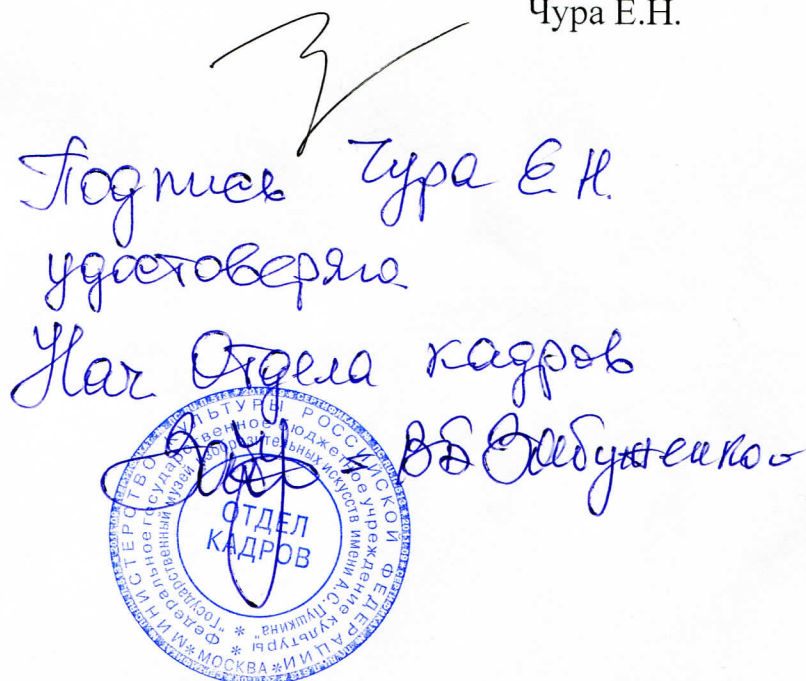 Чура Е.Н.
Подпись Чура Е.Н.
удостоверяю
Нач Отдела кадров
В.Б.
МИНИСТЕРСТВО КУЛЬТУРЫ РОССИЙСКОЙ ФЕДЕРАЦИИ * МОСКВА *
Федеральное государственное бюджетное учреждение культуры *
"Государственный музей изобразительных искусств имени А.С. Пушкина" *
ОТДЕЛ
КАДРОВ